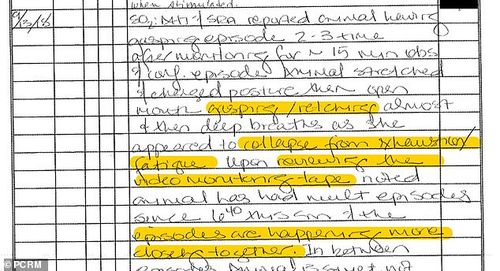 when stimulated.
9/13/18
SO: MTF/SRA reported animal having
gasping episode 2-3 time
after monitoring for ~ 15 min obs
& conf. episode Animal stretched
& changed posture then open
mouth gasping/retching almost
& then deep breaths as she
appeared to collapse from exhaustion/
fatigue Upon reviewing the
video monitoring tape noted
animal has had mult episodes
since 6:40 this am & the
episodes are happening more
closely together. In between
episodes animal is quiet not
© PCRM